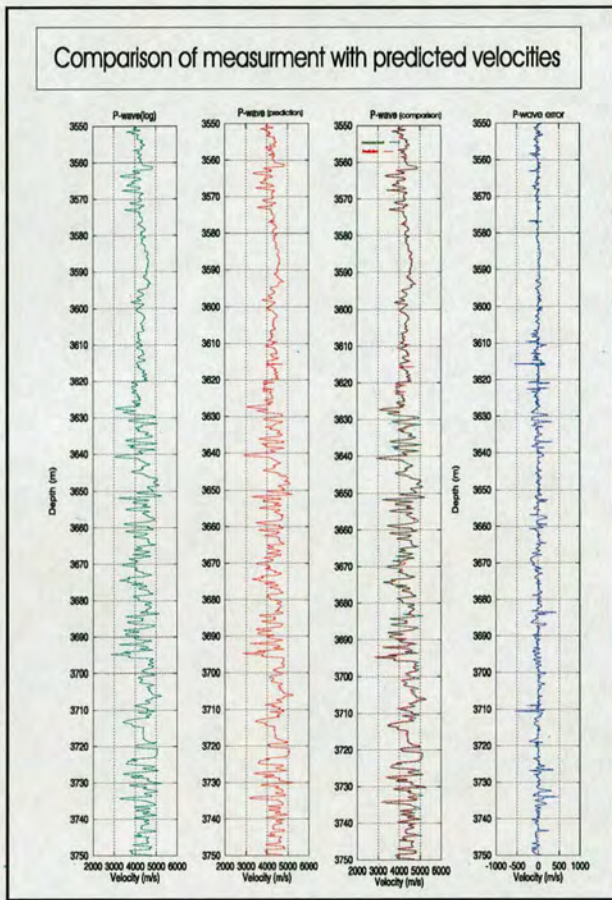 Comparison of measurment with predicted velocities
P-wave(log)
3550
3560
3570
3580
3590
3600
3610
3620
3630
3640
3650
3660
3670
3680
3690
3700
3710
3720
3730
3740
3750
Depth (m)
2000 3000 4000 5000 6000
Velocity (m/s)
P-wave (prediction)
3550
3560
3570
3580
3590
3600
3610
3620
3630
3640
3650
3660
3670
3680
3690
3700
3710
3720
3730
3740
3750
2000 3000 4000 5000 6000
Velocity (m/s)
P-wave (comparison)
3550
3560
3570
3580
3590
3600
3610
3620
3630
3640
3650
3660
3670
3680
3690
3700
3710
3720
3730
3740
3750
2000 3000 4000 5000 6000
Velocity (m/s)
P-wave error
3550
3560
3570
3580
3590
3600
3610
3620
3630
3640
3650
3660
3670
3680
3690
3700
3710
3720
3730
3740
3750
Depth (m)
-1000 -500 0 500 1000
Velocity (m/s)